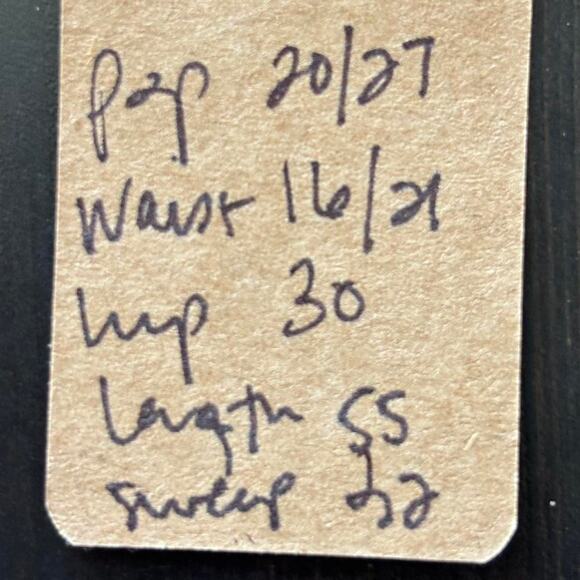 p2p 20/27
Waist 16/21
hip 30
length 55
sweep 22